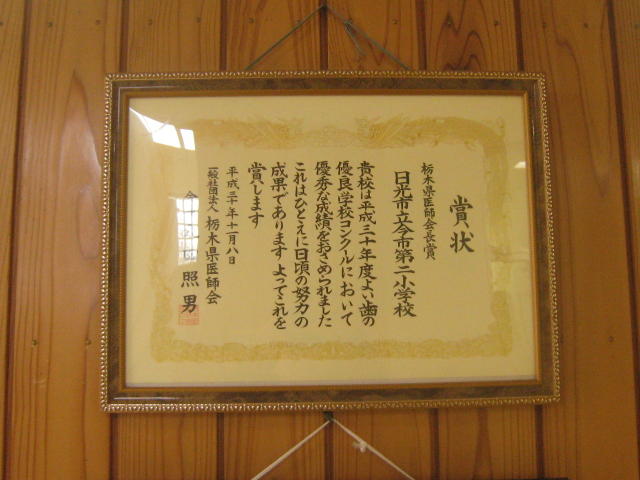 賞状
栃木県医師会長賞
日光市立今市第二小学校
貴校は平成三十年度よい歯の
優良学校コンクールにおいて
優秀な成績をおさめられました
これはひとえに日頃の努力の
成果であります よってこれを
賞します
平成三十年十一月八日
一般社団法人 栃木県医師会
会 照男